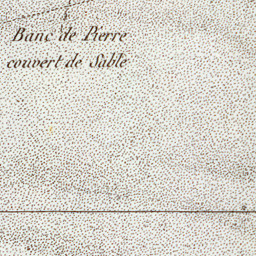 Banc de Pierre
couvert de Sable